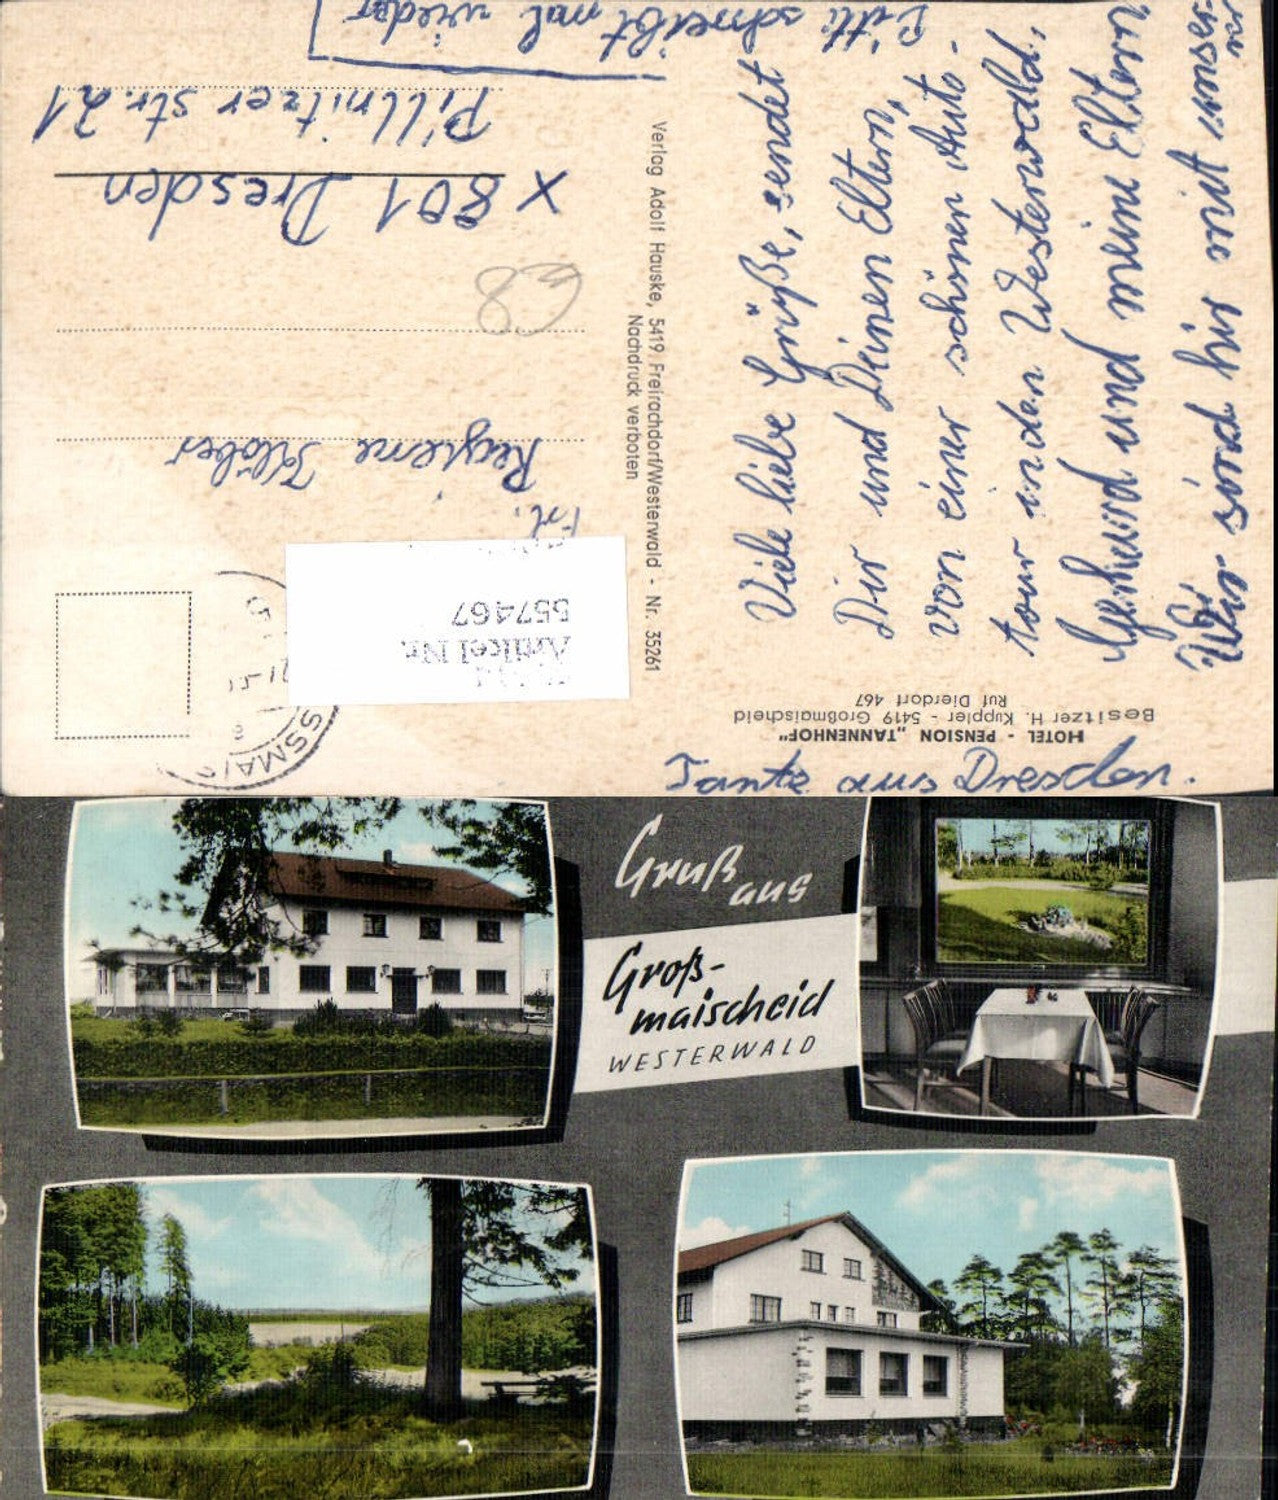 HOTEL - PENSION „TANNENHOF"
Besitzer H. Kuppler - 5419 Großmaischeid
Ruf Dierdorf 467
Viele liebe Grüße, sendet
Dir und Deinen Eltern,
von einer schönen Auto-
tour in den Westerwald,
Gerhard und meine Eltern
Wir sind hir mit unser-
Tante aus Dresden.
Bitte schreibt mal wieder
Verlag Adolf Hauske, 5419 Freirachdorf/Westerwald - Nr. 35261
Nachdruck verboten
Artikel Nr.
557467
Frl.
X 801 Dresden
Pillnitzer Str. 21
Gruß
aus
Groß-
maischeid
WESTERWALD